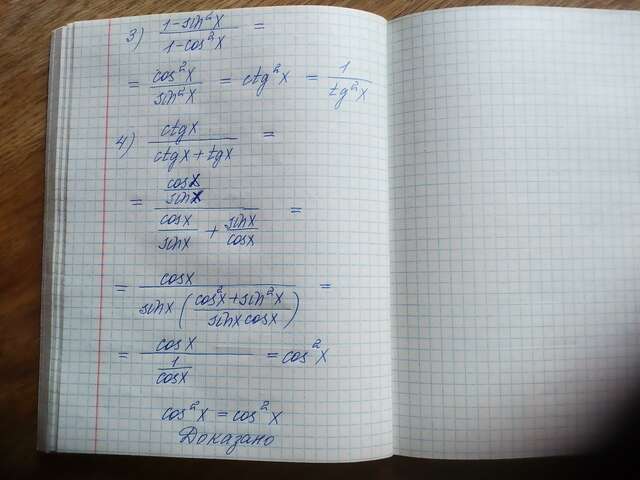 3) (1 - sin²x)/(1 - cos²x) =
= cos²x/sin²x = ctg²x = 1/tg²x
4) ctgx/(ctgx + tgx) =
= (cosx/sinx)/(cosx/sinx + sinx/cosx) =
= cosx/(sinx((cos²x + sin²x)/(sinx cosx))) =
= cosx/(1/cosx) = cos²x
cos²x = cos²x
Доказано